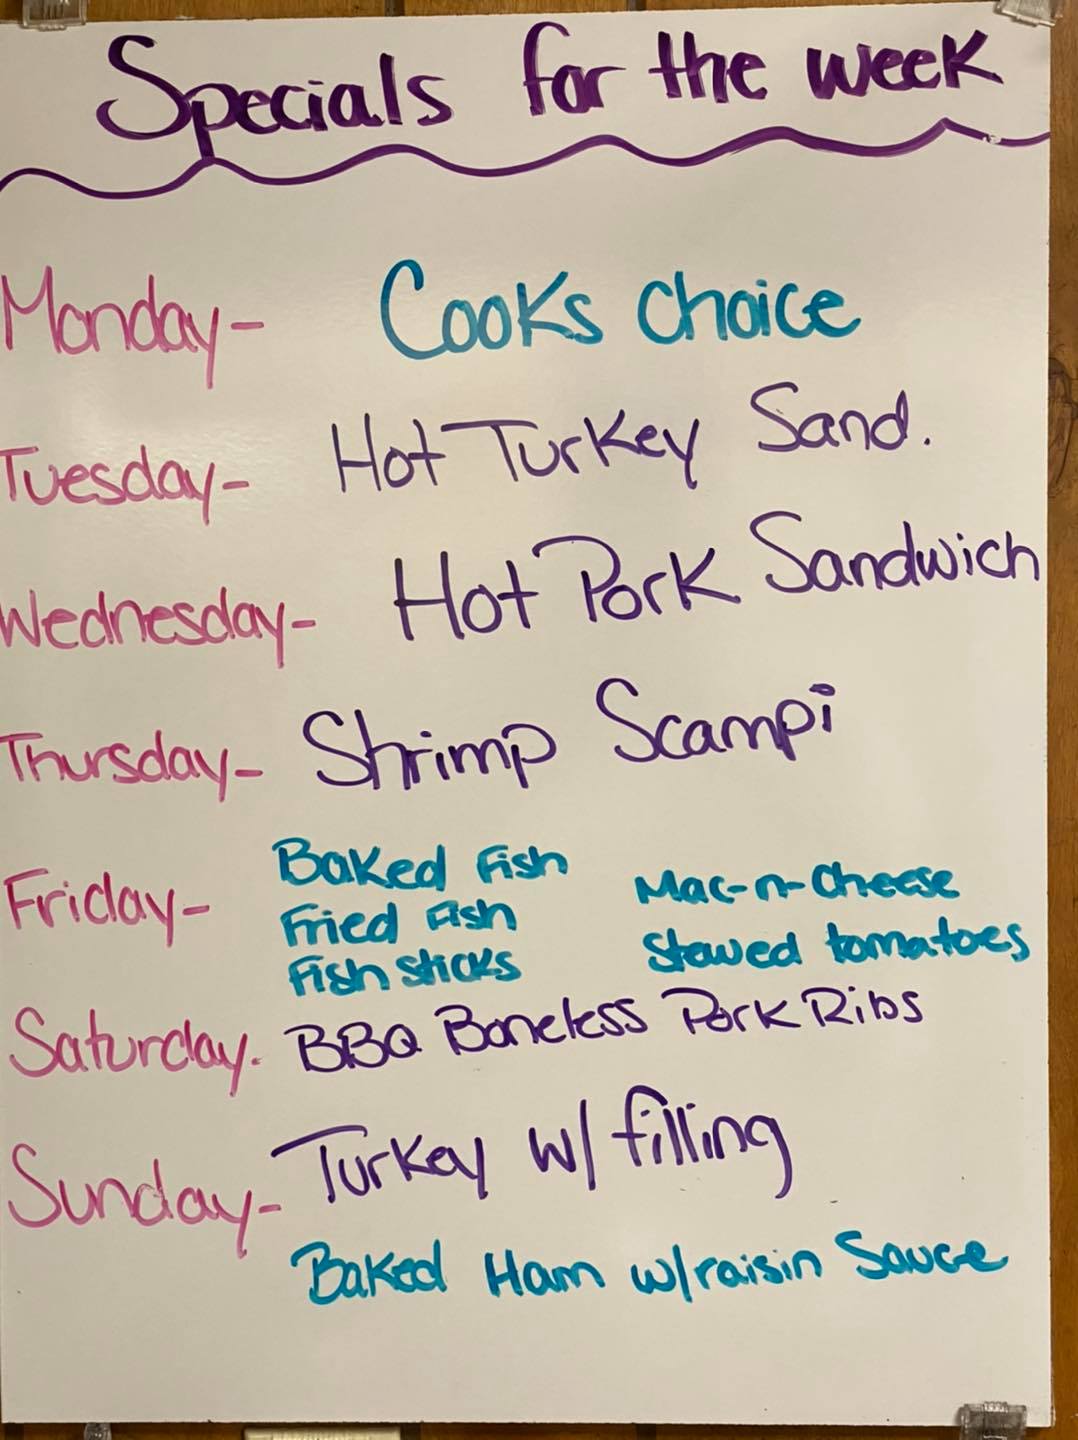 Specials for the week
Monday- Cooks choice
Tuesday- Hot Turkey Sand.
Wednesday- Hot Pork Sandwich
Thursday- Shrimp Scampi
Friday- Baked Fish Mac-n-Cheese
Fried Fish Stewed tomatoes
Fish sticks
Saturday. BBQ Boneless Pork Ribs
Sunday- Turkey w/ filling
Baked Ham w/raisin Sauce